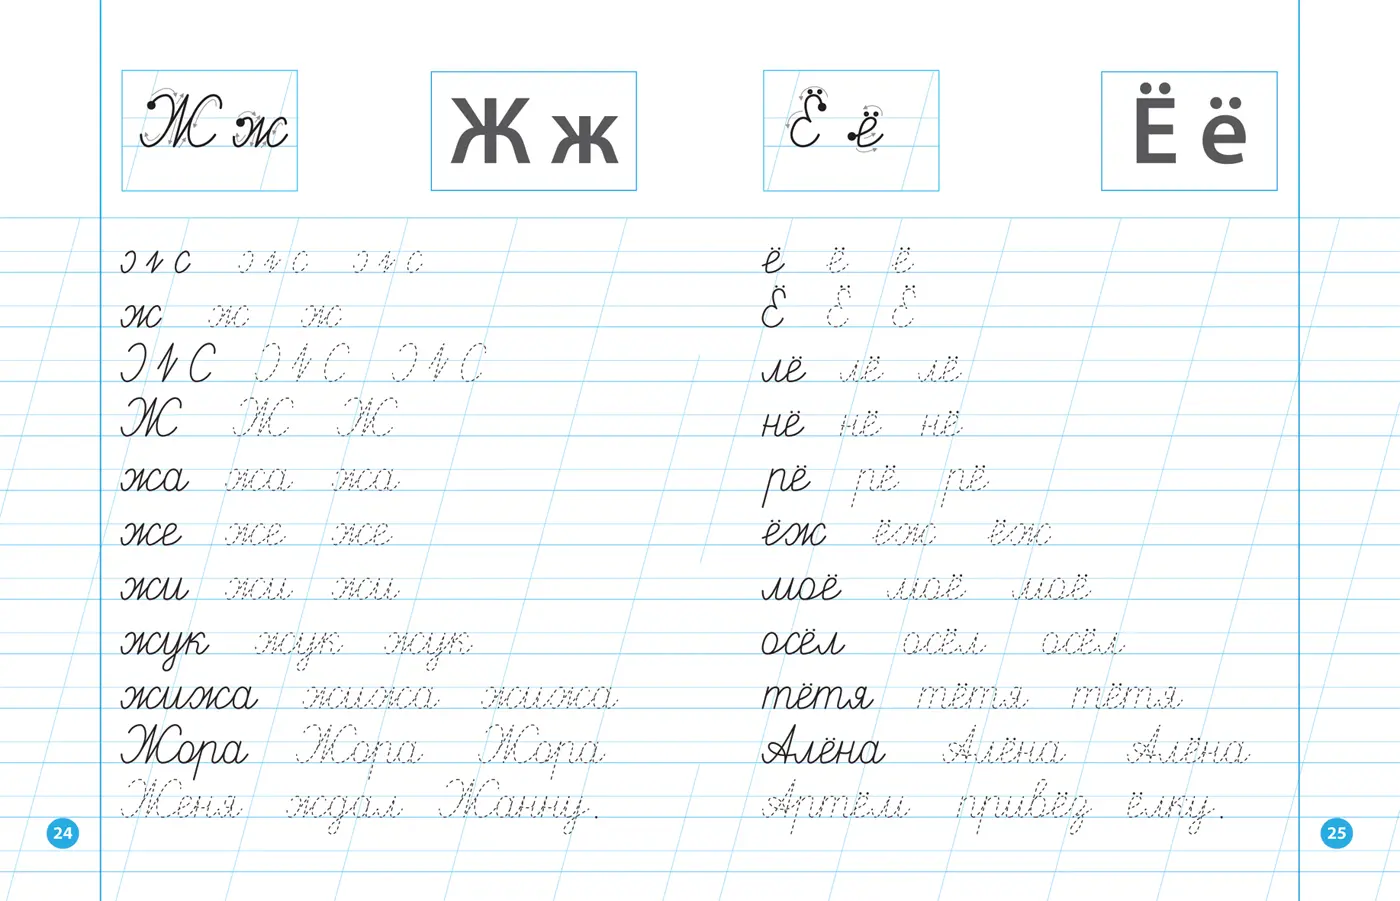 Ж ж Ж ж
ж ж ж
Ж Ж Ж
жа жа жа
же же же
жи жи жи
жук жук жук
жижа жижа жижа
Жора Жора Жора
Женя ждал Жанну.
24
Ё ё Ё ё
ё ё ё
Ё Ё Ё
лё лё лё
нё нё нё
рё рё рё
ёж ёж ёж
моё моё моё
осёл осёл осёл
тётя тётя тётя
Алёна Алёна Алёна
Артём привёз ёлку.
25